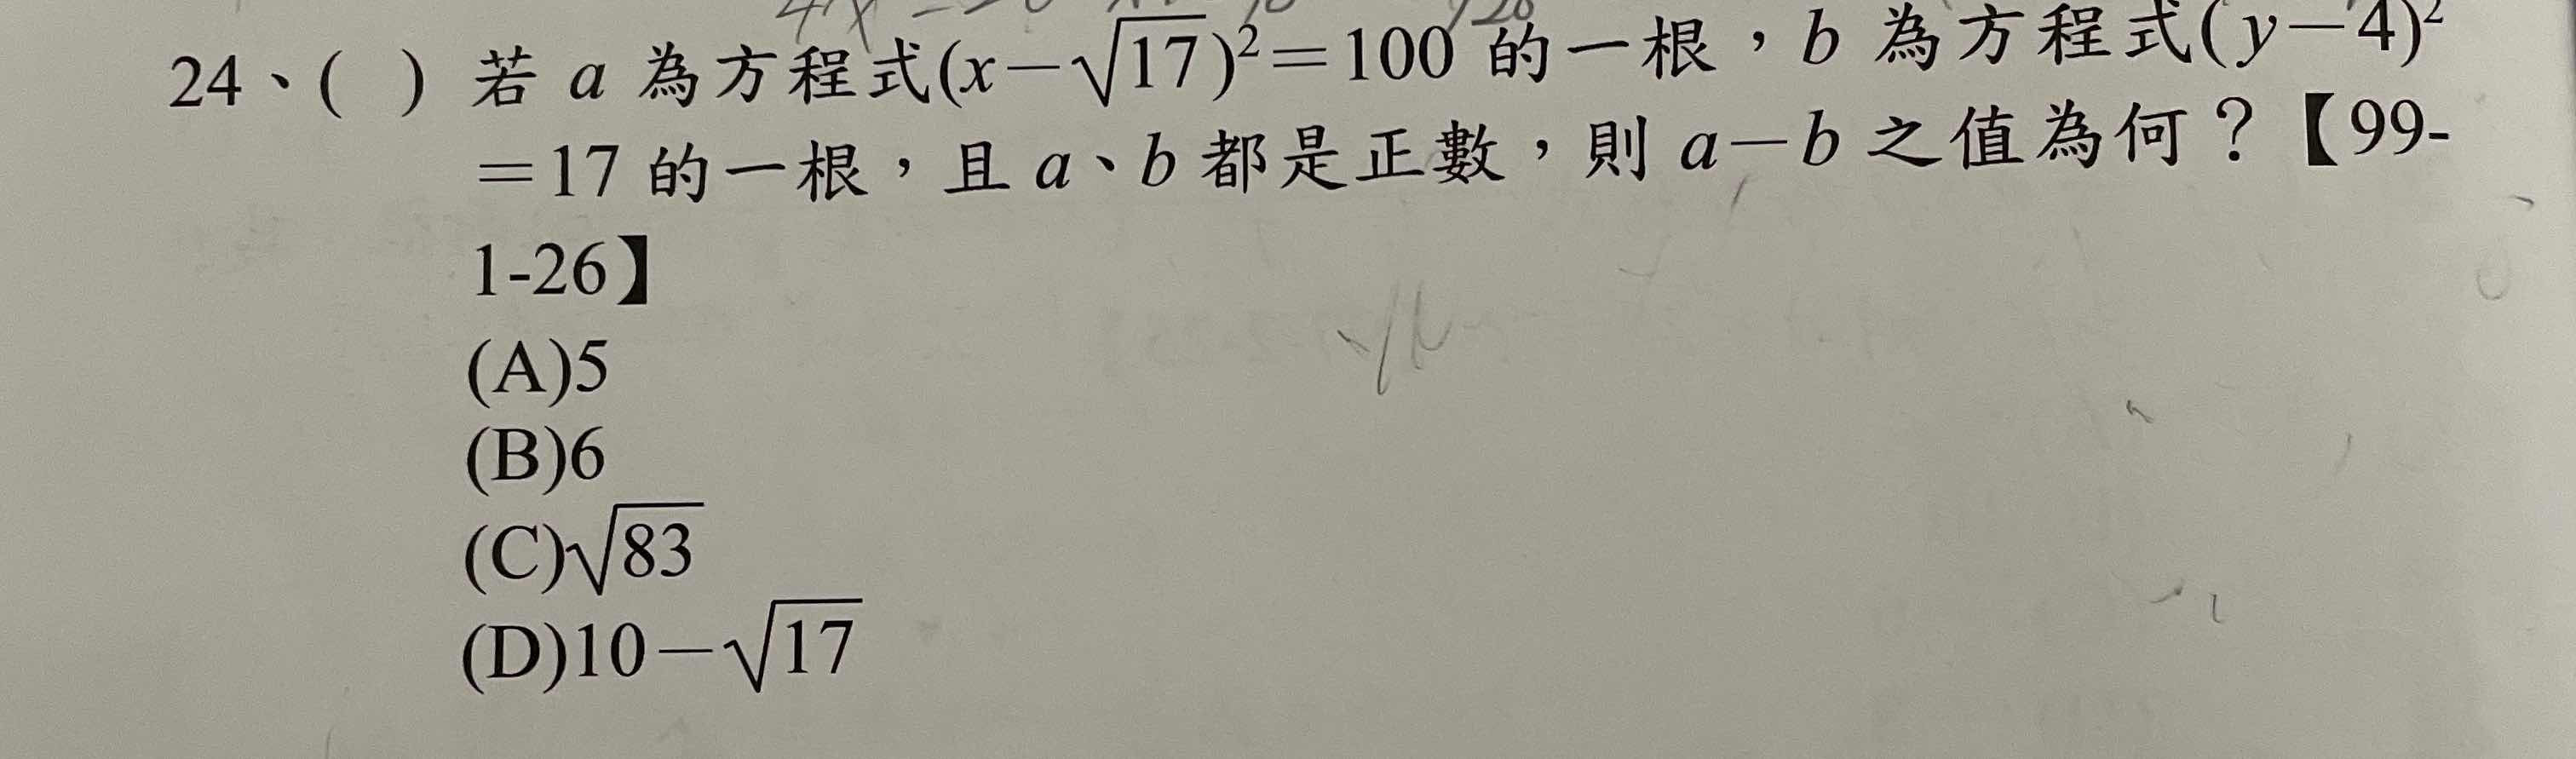 24、(　) 若 a 為方程式(x－√17)²＝100 的一根，b 為方程式(y－4)²
＝17 的一根，且 a、b 都是正數，則 a－b 之值為何？【99-
1-26】
(A)5
(B)6
(C)√83
(D)10－√17